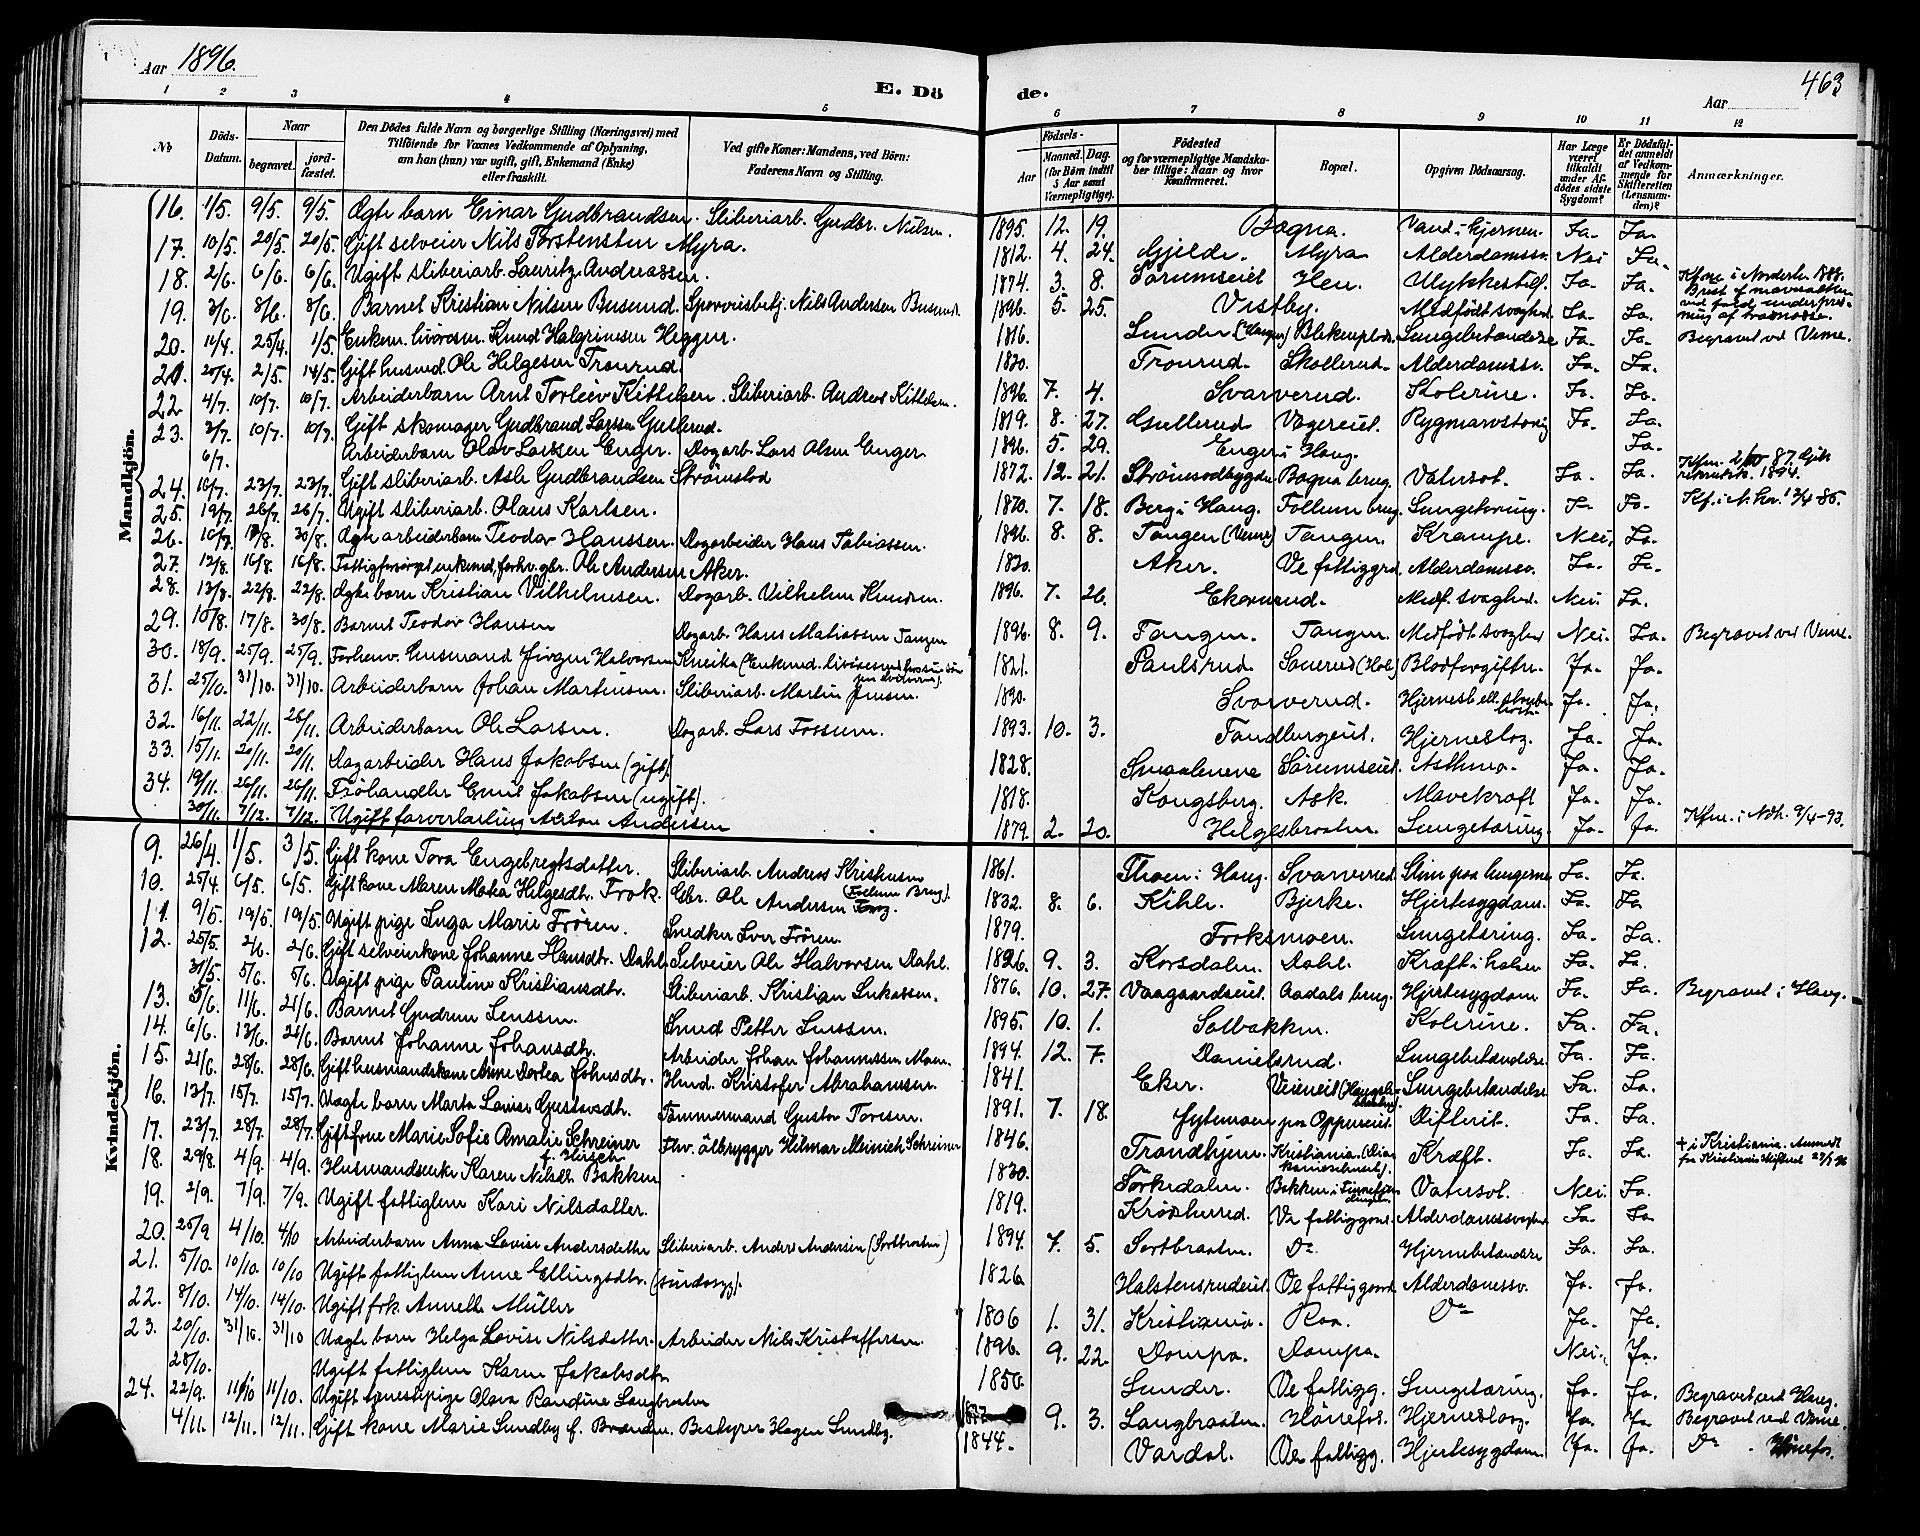 Aar 1896.
E. Dö de.
Aar
463
1 2 3 4 5 6 7 8 9 10 11 12
No
Döds-Datum.
Naar
begravet.
jord-fæstet.
Den Dödes fulde Navn og borgerlige Stilling (Næringsvei) med Tilföiende for Voxnes Vedkommende af Oplysning, om han (hun) var ugift, gift, Enkemand (Enke) eller fraskilt.
Ved gifte Koner: Mandens, ved Börn: Faderens Navn og Stilling.
Födsels-
Aar
Maaned. Dag.
(for Börn indtil 5 Aar samt Værnepligtige).
Födested
og for værnepligtige Mandskaber tillige: Naar og hvor konfirmeret.
Bopæl.
Opgiven Dödsaarsag.
Har Læge været tilkaldt under Afdödes sidste Sygdom?
Er Dödsfaldet anmeldt af Vedkommende for Skifteretten (Lensmanden)?
Anmærkninger.
Mandkjön.
16. 1/5. 9/5. 9/5. Ægte barn Einar Gudbrandsen. Sliberiarb. Gudbr. Nilsen. 1895. 12. 19. Bogna. Vand i hjernen Ja. Ja.
17. 10/5. 20/5. 20/5. Gift selveier Nils Torstensen Myra. 1812. 4. 24. Gjelde. Myra Alderdomssv. Nei Ja.
18. 2/6. 6/6. 6/6. Ugift sliberiarb. Lauritz Andreassen. 1874. 3. 8. Sørumseiet Hen. Ulykkestilf. Ja. Ja.
19. 3/6. 8/6. 8/6. Barnet Kristian Nilsen Busund. Nils Andersen Busund. 1896. 5. 25. Vestby. Medfødt svaghed Ja. Ja.
20. 11/4. 25/4. 1/5. Enkem. Knud Halgrimsen Heggen. 1816. Lunder Lungebetændelse Ja. Ja. Begravet ved Veme.
21. 20/4. 2/5. 14/5. Gift husmd. Ole Helgesen Tronrud. 1820. Tronrud. Skollerud. Alderdomssv. Ja. Ja.
22 4/7. 10/7. 10/7. Arbeiderbarn Arnt Torleiv Kittelsen. Sliberiarb. Andreas Kittelsen. 1896. 7. 4. Svarverud. Kolerine. Ja. Ja.
23. 3/7. 10/7. 10/7. Gift skomager Gudbrand Larssen Gullerud. 1819. 8. 27. Gullerud Rygmarvstæring Ja. Ja.
6/7. Arbeiderbarn Olav Larsen Enger. Dagarb. Lars Olsen Enger 1896. 5. 29. Enger i Haug. Ja.
24. 16/7. 23/7. 23/7. Gift sliberiarb. Asle Gudbrandsen Strømstod 1872. 12. 21. Strømsodbygden Bogna brug. Vatersot. Ja. Ja.
25. 19/7. 26/7. 26/7. Ugift sliberiarb. Olaus Karlsen. 1870. 7. 18. Berg i Haug. Follum brug. Lungetæring. Ja. Ja.
26. 10/8. 30/8. Ægte arbeiderbarn Teodor Hanssen. Dagarbeider Hans Tobiassen. 1896. 8. 8. Tangen (Veme) Tangen. Krampe. Nei, Ja.
27. 12/8. 16/8. 16/8. Fattigforsørget enkemd, forhv. gbr. Ole Andersen Aker. 1820. Aker. Ve fattiggrd. Alderdomssv. Ja. Ja.
28. 13/8. 22/8. 22/8. Ægte barn Kristian Vilhelmsen. Dagarb. Vilhelm Knudsen. 1896. 7. 26. Ekornrud. Medf. svaghed. Nei. Ja.
29. 10/8. 17/8. 30/8. Barnet Teodor Hansen Dagarb. Hans Matiassen Tangen 1896. 8. 9. Tangen. Tangen. Medfödt svaghed Nei. Ja. Begravet ved Veme.
30. 18/9. 25/9. 25/9. Forhenv. husmand Jörgen Halvorsen Kneika 1821. Paulsrud. Blodforgiftn. Ja. Ja.
31. 25/10. 31/10. 31/10. Arbeiderbarn Johan Martinsen. Sliberiarb. Martin Jensen. Svarverud. Ja. Ja.
32. 16/11. 22/11. 26/11. Arbeiderbarn Ole Larsen. Dagarb. Lars Fossum. 1893. 10. 3. Tandbergeiet. Hjerneslag. Ja. Ja.
33. 15/11. 20/11. 20/11. Dagarbeider Hans Jakobsen (gift). 1828. Smaalenene Sørumseiet. Asthma. Ja. Ja.
34. 19/11. 26/11. 26/11. Frøhandler Emil Jakobsen (ugift). 1818. Kongsberg. Ask. Mavekræft Ja. Ja.
30/11. 7/12. 7/12. Ugift Anton Andersen 1879. 2. 20. Helgesbraaten. Lungetæring. Ja. Ja. Kfm. i Ndh. 9/4-93.
Kvindekjön.
9. 26/4. 1/5. 3/5. Gift kone Tora Engebregtsdatter. Sliberiarb. Andreas Kristensen (Follum Brug). 1861. Thoen i Haug. Svarverud Slim paa lungerne Ja. Ja.
10. 25/4. 6/5. 6/5. Gift kone Maren Helgesdt. Trok. Gbr. Ole Andersen 1832. 8. 6. Kihle. Bjerke. Hjertesygdom. Ja. Ja
11. 9/5. 19/5. 19/5. Ugift pige Inga Marie Frøren. Snedker Iver Frøren. 1879. Torksmoen. Lungetæring. Ja. Ja.
12. 25/5. 2/6. 2/6. Gift selveierkone Johanne Hansdtr. Dahl. Selveier Ole Halvorsen Dahl. 1826. 9. 3. Korsdalen. Dahl. Kræft i halsen Ja. Ja.
31/5. 5/6. 5/6. Ugift pige Pauline Kristiansdtr. Sliberiarb. Kristian Lukassen. 1876. 10. 27. Vaagaardseiet. Aadals brug. Hjertesygdom Ja. Ja. Begravet i Haug.
13. 5/6. 11/6. 21/6. Barnet Gudrun Jenssen. Smed Petter Jenssen. 1895. 10. 1. Solbakken. Kolerine. Ja. Ja.
14. 6/6. 13/6. 21/6. Barnet Johanne Johansdtr. Arbeider Johan Johannessen Moen. 1894. 12. 7. Danielsrud. Lungebetændelse. Ja. Ja.
15. 21/6. 28/6. 28/6. Gift husmandskone Anne Dortea Johnsdtr. Husmd. Kristofer Abrahamsen. 1841. Eker. Veieneiet Lungebetændelse Ja. Ja.
16. 13/7. 15/7. 15/7. Uægte barn Marta Lovise Gustavsdtr. Tømmermand Gustav Toresen. 1891. 7. 18. Hytemoen paa Opperseiet. Difterit. Ja. Ja.
17. 23/7. 28/7. 28/7. Gift frue Marie Sofie Amalie Schreiner f. Hirsch Fhv. ölbrygger Hilmar Meinich Schreiner 1846. Trondhjem. Kristiania Kræft. Ja. Ja. † i Kristiania. Anmeldt fra Kristiania skifteret 29/7 96
18. 29/8. 4/9. 4/9. Husmandsenke Karen Nilsdt. Bakken 1830. Sørkedalen. Bakken i Vatersot. Nei. Ja.
19. 2/9. 7/9. 7/9. Ugift fattiglem Kari Nilsdatter. 1819. Krødsherred. Ve fattiggaard. Alderdomssvaghed Ja. Ja
20. 25/9 4/10. 4/10 Arbeiderbarn Anna Lovise Andersdatter Sliberiarb. Anders Andersen (Sortbraaten) 1894. 7. 5. Sortbraaten. Do Hjernebetændelse Ja. Ja.
21. 5/10. 10/10. 10/10 Ugift fattiglem Anne Ellingsdtr. (sindssyg). 1826 Halstensrudeiet. Ve fattiggaard Alderdomssv. Ja. Ja.
22. 8/10. 14/10. 14/10. Ugift frk. Annette Müller 1806 1. 31. Kristiania. Raa. Do Ja. Ja.
23. 20/10. 31/10. 31/10 Uægte barn Helga Lovise Nilsdatter. Arbeider Nils Kristoffersen. 1896. 9. 22. Dompa. Dompa. Nei. Ja.
28/10. Ugift fattiglem Karen Jakobsdtr. 1850. Lunder. Ve fattigg. Lungetæring. Ja. Ja. Begravet ved Haug.
24. 22/9. 11/10 11/10. Ugift tjenestepige Olava Randine Langbraaten 9. 3. Langbraaten. Hönefos. Hjerneslag. Ja. Ja Begravet ved Veme
4/11. 12/11. 12/11. Gift kone Marie Sundby f. Branden. Bestyrer Hagen Sundby. 1844. Vardal. Ve fattigg. Hjertesygdom Ja. Ja. Do Hönefos.